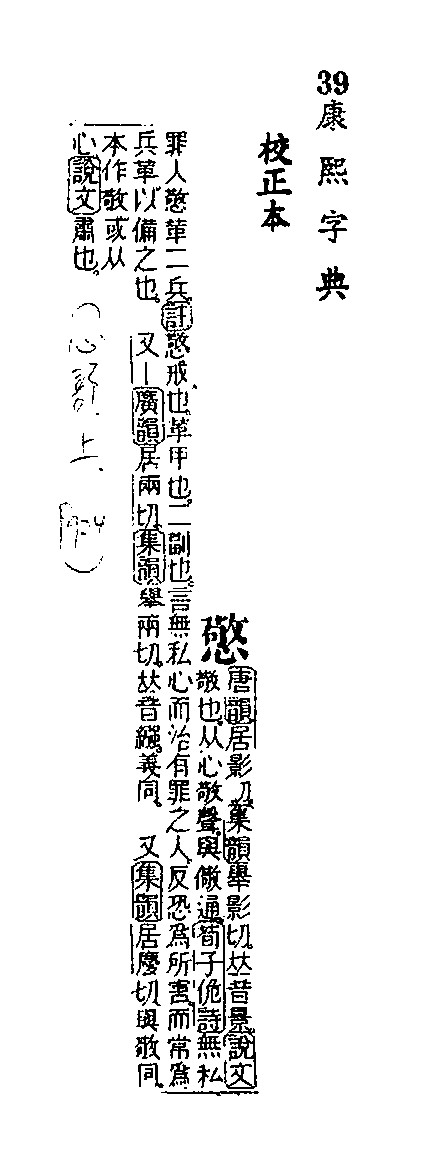 39康熙字典
校正本
憼
唐韻居影切集韻舉影切𠀤音景說文
敬也从心敬聲與儆通荀子佹詩無私
罪人憼革二兵註憼戒也革甲也二副也言無私心而治有罪之人反恐為所害而常為
兵革以備之也 又丨廣韻居兩切集韻舉兩切𠀤音繦義同 又集韻居慶切與敬同
本作敬或从
心說文肅也
(心部 上